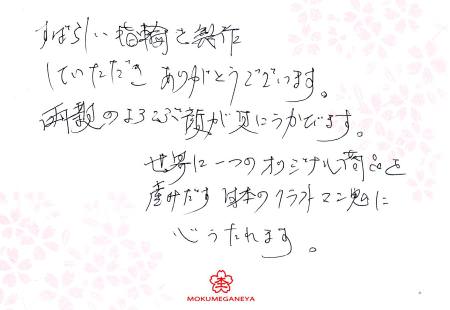 すばらしい指輪を製作
していただき ありがとうございます。
両親のよろこぶ顔が目にうかびます。
世界に一つのオリジナル商品を
産みだす 日本のクラフトマン魂に
心うたれます。
MOKUMEGANEYA